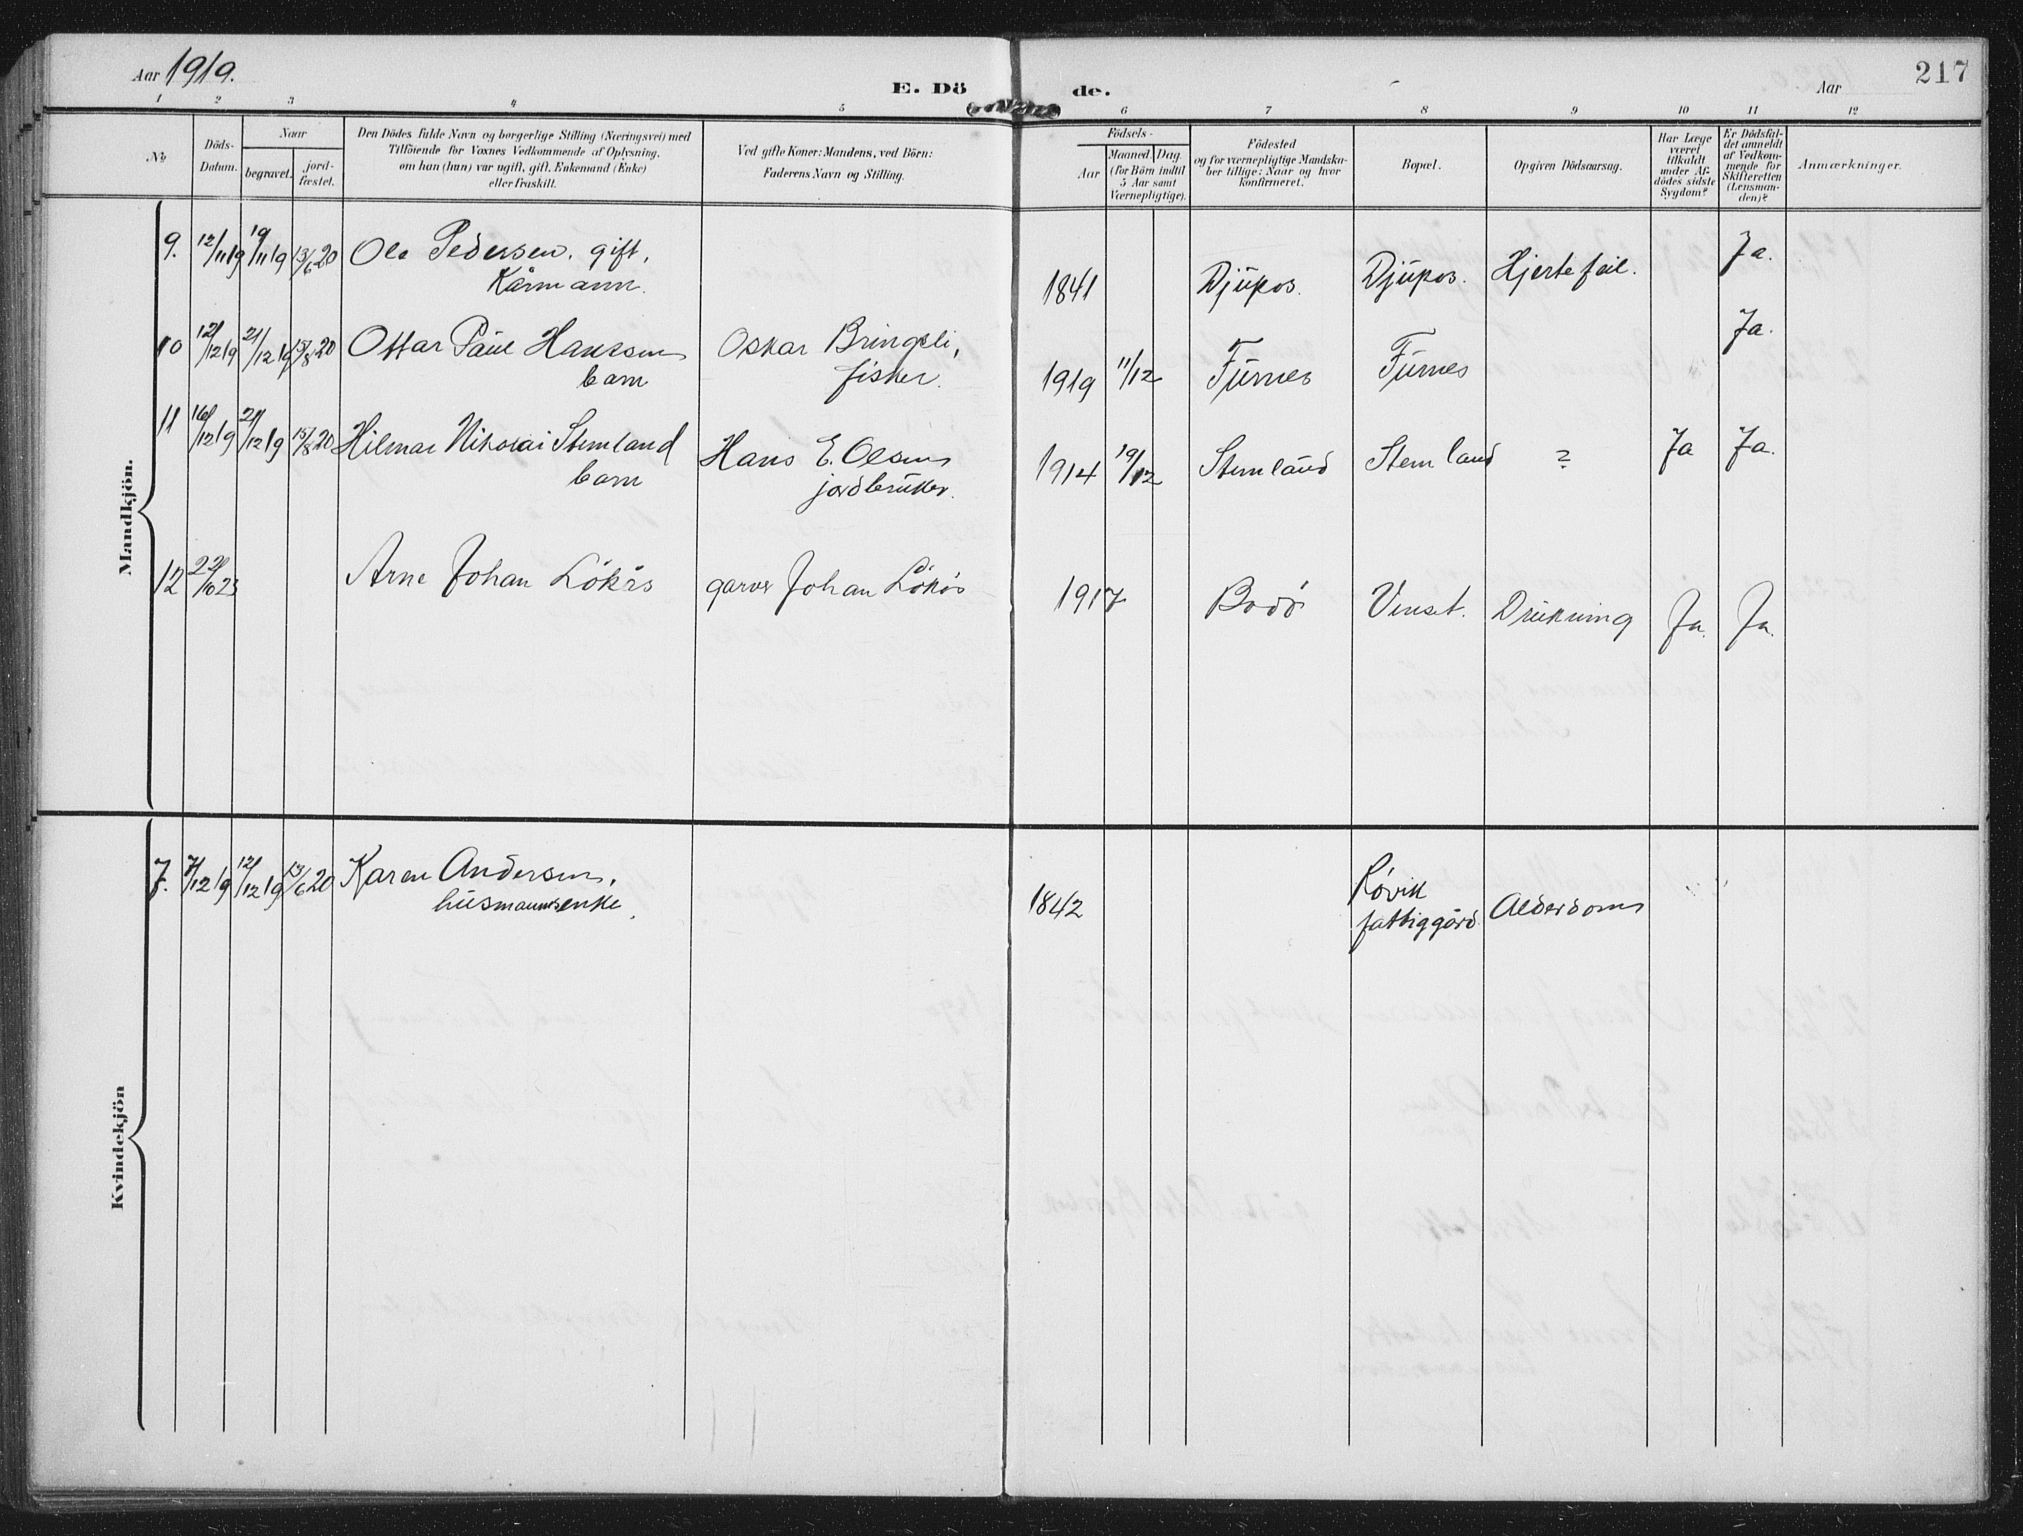 Aar 1919.
E. Dö
de.
Aar
217
1 2 3 4 5 6 7 8 9 10 11 12
No
Döds-
Datum.
Naar
begravet.
jord-
fæstet.
Den Dödes fulde Navn og borgerlige Stilling (Næringsvei) med
Tilföiende for Voxnes Vedkommende af Oplysning,
om han (hun) var ugift, gift, Enkemand (Enke)
eller fraskilt.
Ved gifte Koner: Mandens, ved Börn:
Faderens Navn og Stilling.
Födsels-
Aar
Maaned.
Dag.
(for Börn indtil
5 Aar samt
Værnepligtige).
Födested
og for værnepligtige Mandska-
ber tillige: Naar og hvor
konfirmeret.
Bopæl.
Opgiven Dödsaarsag.
Har Læge
været
tilkaldt
under Af-
dödes sidste
Sygdom?
Er Dödsfal-
det anmeldt
af Vedkom-
mende for
Skifteretten
(Lensman-
den)?
Anmærkninger.
Mandkjön.
9. 12/11 19 19/11 19 13/6 20 Ole Pedersen. gift, 1841 Djupos. Djupos. Hjertefeil. Ja.
Kårmann.
10 12/12 19 21/12 19 15/8 20 Ottar Paul Hanssen Oskar Bringsli, 1919 11/12 Furnes Furnes Ja.
barn fisker.
11 16/12 19 21/12 19 15/8 20 Hilmar Nikolai Stemland Hans E. Olsen 1914 19/12 Stemland Stemland ? Ja Ja.
barn jordbruker.
12 22/10 23 Arne Johan Lökås garver Johan Lökås 1917 Bodö Venset. Drukning Ja. Ja.
Kvindekjön
7. 7/12 19 12/12 19 13/6 20 Karen Andersen, 1842 Løvik Alderdom
husmannsenke. fattiggård